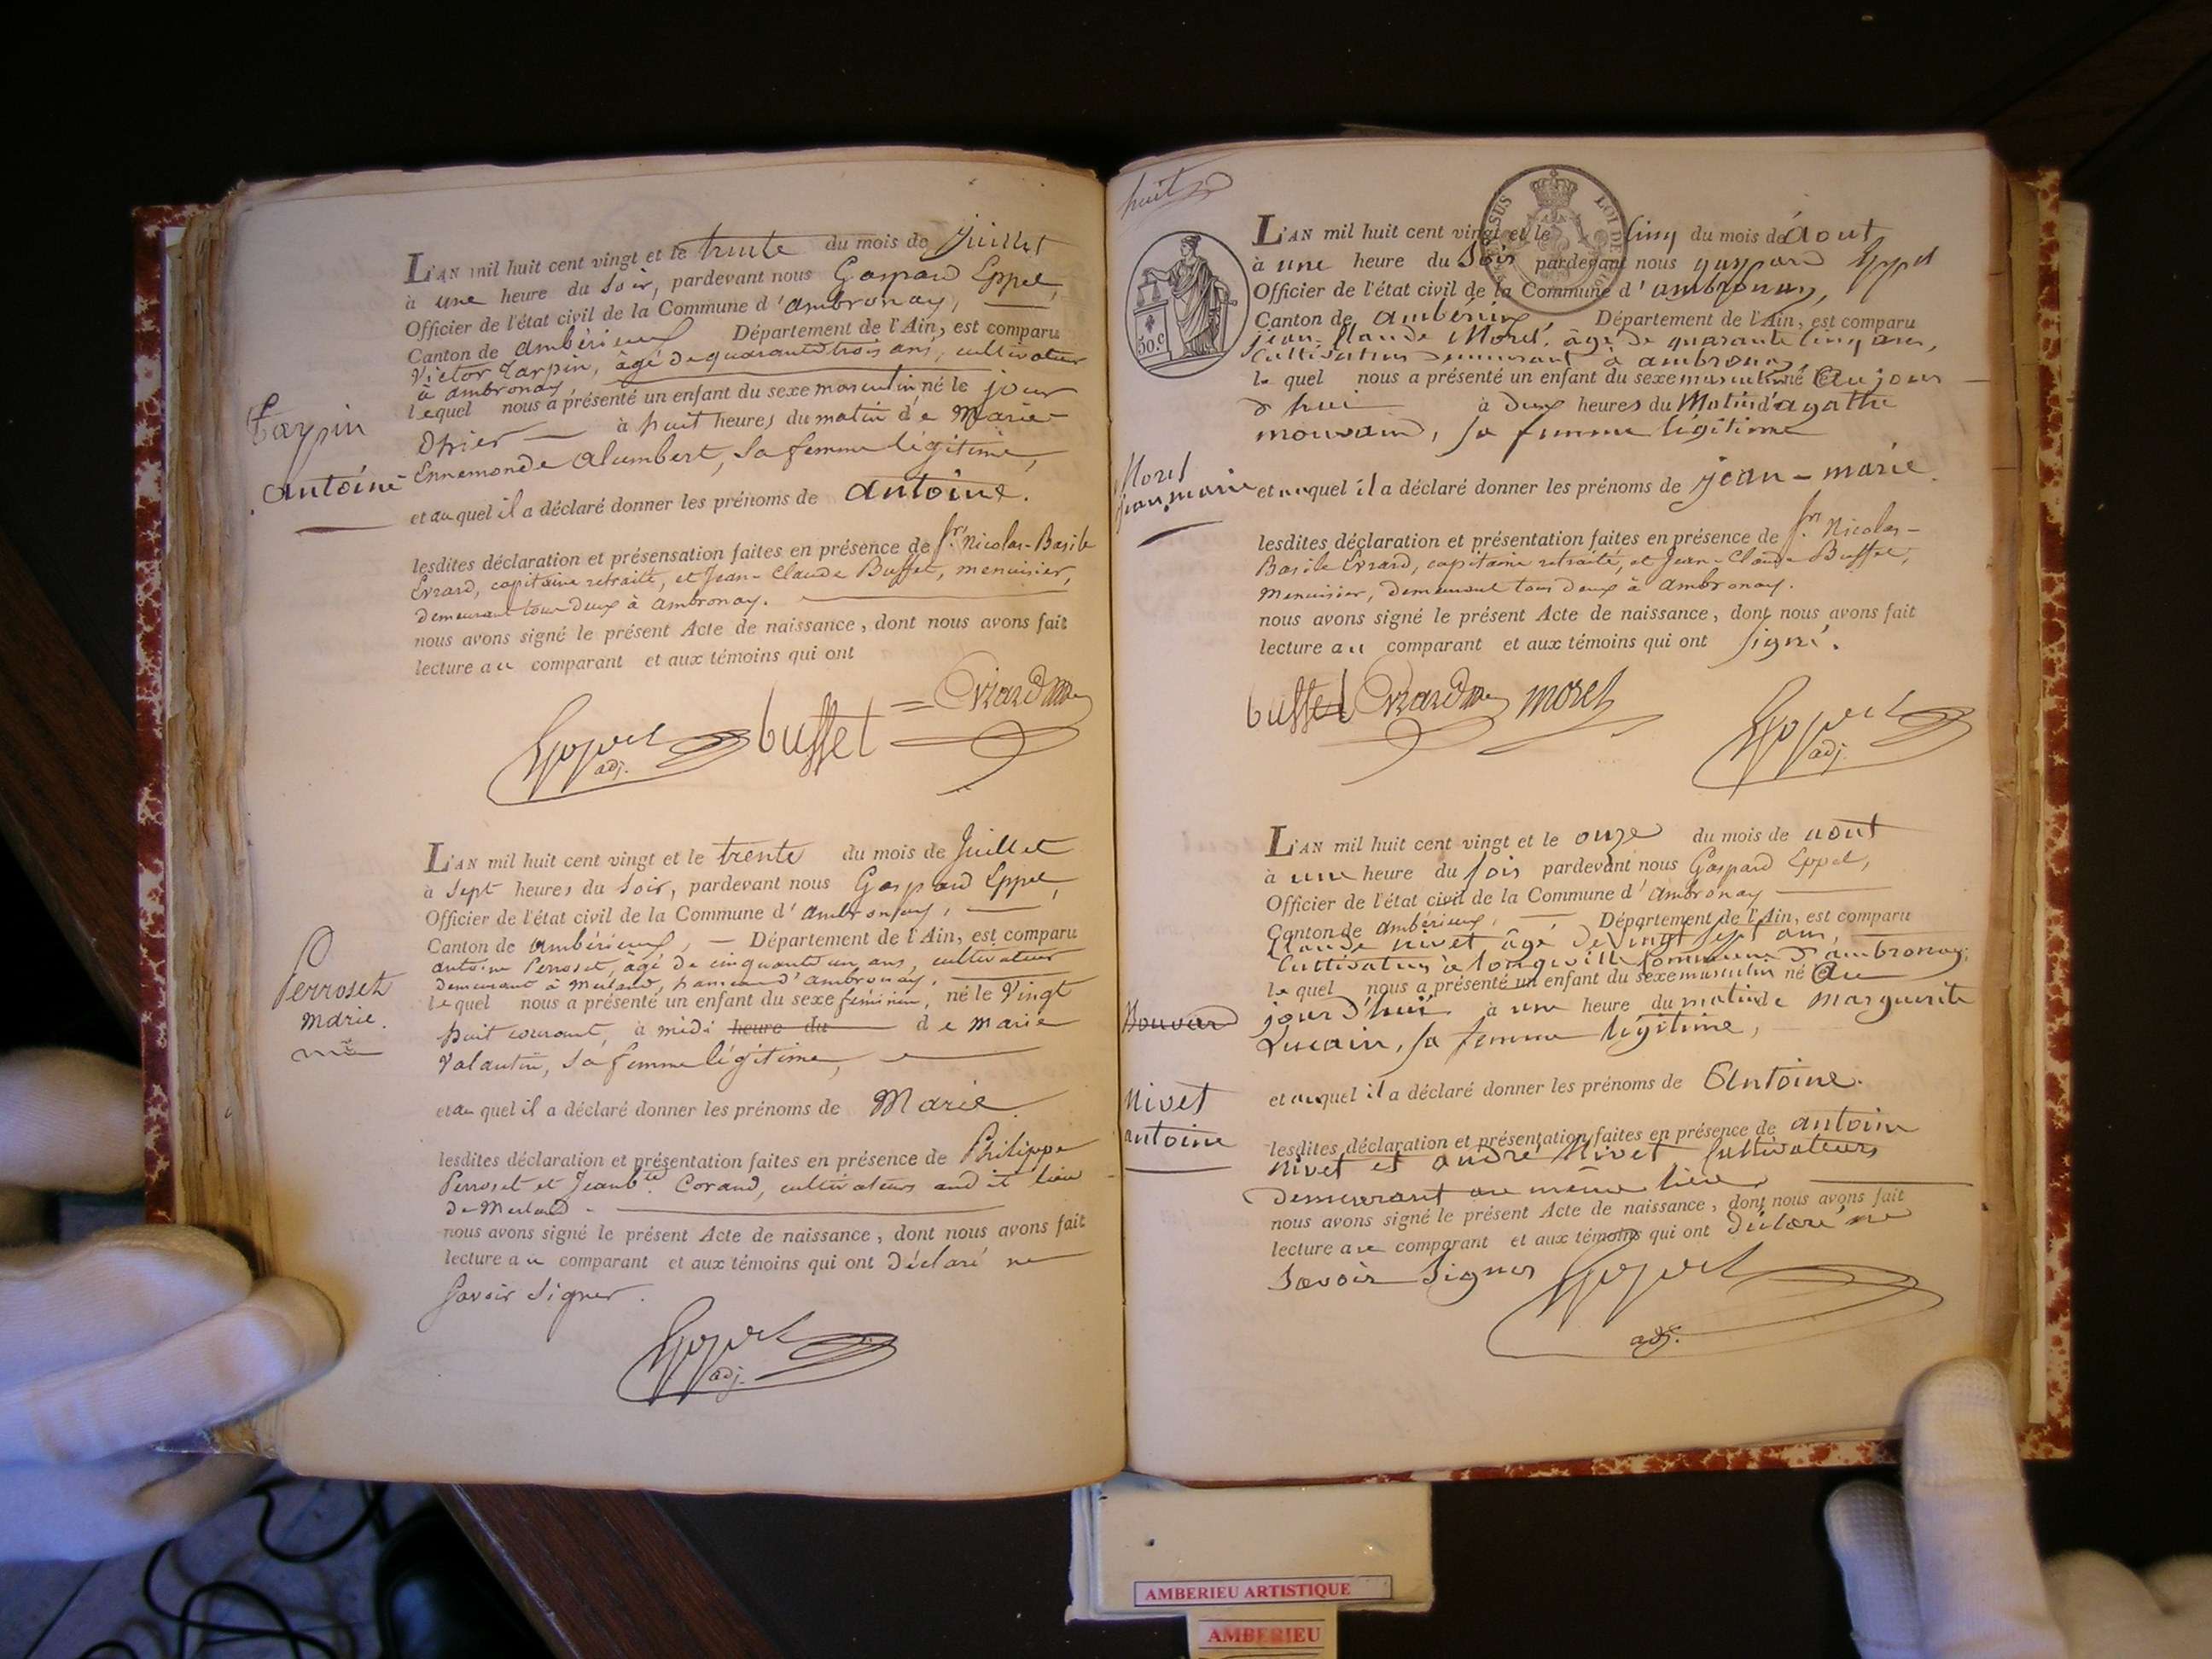 L'AN mil huit cent vingt et le trente du mois de Juillet
à une heure du soir, pardevant nous Gaspard Eppel,
Officier de l'état civil de la Commune d'ambronay,
Canton de ambérieux Département de l'Ain, est comparu
Victor Tarpin, âgé de quarante trois ans, cultivateur
à ambronay,
lequel nous a présenté un enfant du sexe masculin né le jour
Tarpin
d'hier à huit heures du matin de Marie
antoine
Ennemonde alumbert, sa femme légitime,
et au quel il a déclaré donner les prénoms de antoine.
lesdites déclaration et présensation faites en présence de Sr. Nicolas-Basile
Evrard, capitaine retraité, et Jean-Claude Buffet, menuisier,
demeurant tous deux à ambronay.
nous avons signé le présent Acte de naissance, dont nous avons fait
lecture au comparant et aux témoins qui ont
Evrard
Eppel buffet
adj.
L'AN mil huit cent vingt et le trente du mois de Juillet
à Sept heures du soir, pardevant nous Gaspard Eppel,
Officier de l'état civil de la Commune d'ambronay,
Canton de ambérieux, Département de l'Ain, est comparu
antoine Perroset, âgé de cinquante un ans, cultivateur
demeurant à Merland, hameau d'ambronay,
lequel nous a présenté un enfant du sexe féminin, né le Vingt
Perroset
Marie.
huit courant, à midi heure du de Marie
Valantin, sa femme légitime,
et au quel il a déclaré donner les prénoms de Marie
lesdites déclaration et présentation faites en présence de Philippe
Perroset et Jean bte. Corand, cultivateurs audit lieu
de Merland.
nous avons signé le présent Acte de naissance, dont nous avons fait
lecture au comparant et aux témoins qui ont déclaré ne
savoir signer.
Eppel
adj.
huit
L'AN mil huit cent vingt et le cinq du mois de Aout
à une heure du Soir pardevant nous gaspard Eppel
Officier de l'état civil de la Commune d'ambronay,
50.c
Canton de ambérieux Département de l'Ain, est comparu
jean-Claude Morel, âgé de quarante cinq ans,
Cultivateur demeurant à ambronay
le quel nous a présenté un enfant du sexe masculin né aujour
d'hui à deux heures du Matin d'agathe
mouvand, sa femme légitime
Morel
jean marie
et auquel il a déclaré donner les prénoms de jean-marie
lesdites déclaration et présentation faites en présence de Srs. Nicolas-
Basile Evrard, capitaine retraité, et Jean-Claude Buffet,
Menuisier, demeurant tous deux à ambronay.
nous avons signé le présent Acte de naissance, dont nous avons fait
lecture au comparant et aux témoins qui ont signé.
buffet Evrard morel
Eppel
adj.
L'AN mil huit cent vingt et le onze du mois de aout
à une heure du soir pardevant nous Gaspard Eppel,
Officier de l'état civil de la Commune d'ambronay
Canton de ambérieux, Département de l'Ain, est comparu
Claude nivet, âgé de vingt sept ans,
Cultivateur à longeville Commune d'ambronay;
le quel nous a présenté un enfant du sexe masculin né au
Bouvard
jourd'hui à une heure du matin de marguerite
Lucain, sa femme légitime,
Nivet
antoine
et auquel il a déclaré donner les prénoms de Antoine.
lesdites déclaration et présentation faites en présence de antoine
Nivet et andré Nivet Cultivateurs
demeurant au même lieu
nous avons signé le présent Acte de naissance, dont nous avons fait
lecture au comparant et aux témoins qui ont déclaré ne
savoir signer
Eppel
adj.
AMBERIEU ARTISTIQUE
AMBERIEU